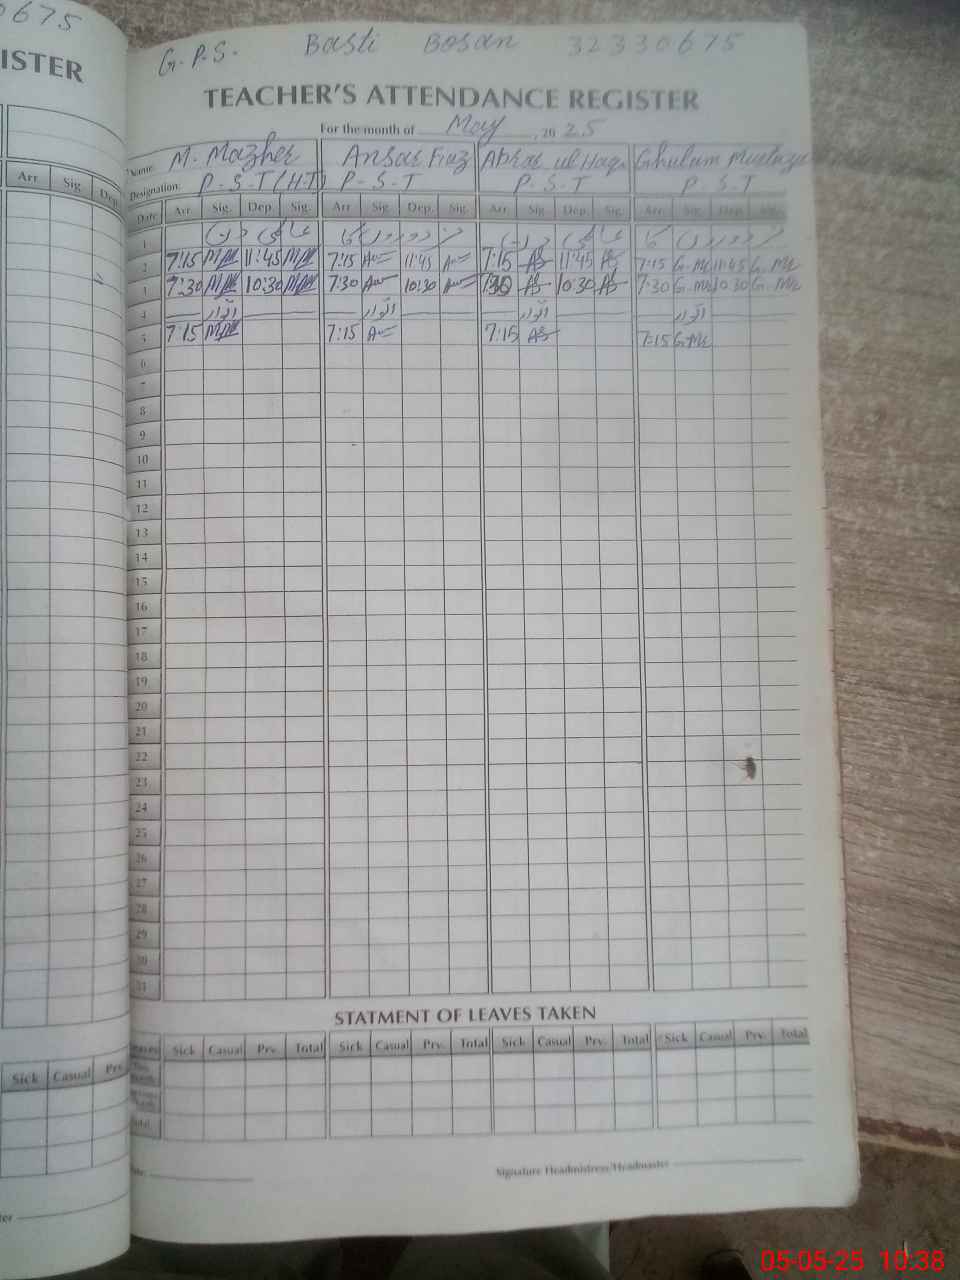 0675
ISTER
Arr. Sig. Dep.
Sick Casual Prv.
G.P.S. Basti Bosan 32330675
TEACHER'S ATTENDANCE REGISTER
For the month of May, 20 25
Name: M. Mazher Ansar Fiaz Abrar ul Haq Ghulam
Designation: P-S-T (H.T) P-S-T P-S-T P-S-T
Date Arr. Sig. Dep. Sig. Arr. Sig. Dep. Sig. Arr. Sig. Dep. Sig. Arr. Sig. Dep. Sig.
1
2 7:15 11:45 7:15 11:45 7:15 11:45 7:15 11:45
3 7:30 10:30 7:30 10:30 10:30 7:30 10:30
4 اتوار اتوار اتوار اتوار
5 7:15 7:15 7:15 7:15
6
7
8
9
10
11
12
13
14
15
16
17
18
19
20
21
22
23
24
25
26
27
28
29
30
31
STATMENT OF LEAVES TAKEN
Leaves Sick Casual Prv. Total Sick Casual Prv. Total Sick Casual Prv. Total Sick Casual Prv. Total
Total
Signature Headmistress/Headmaster
05-05-25 10:38